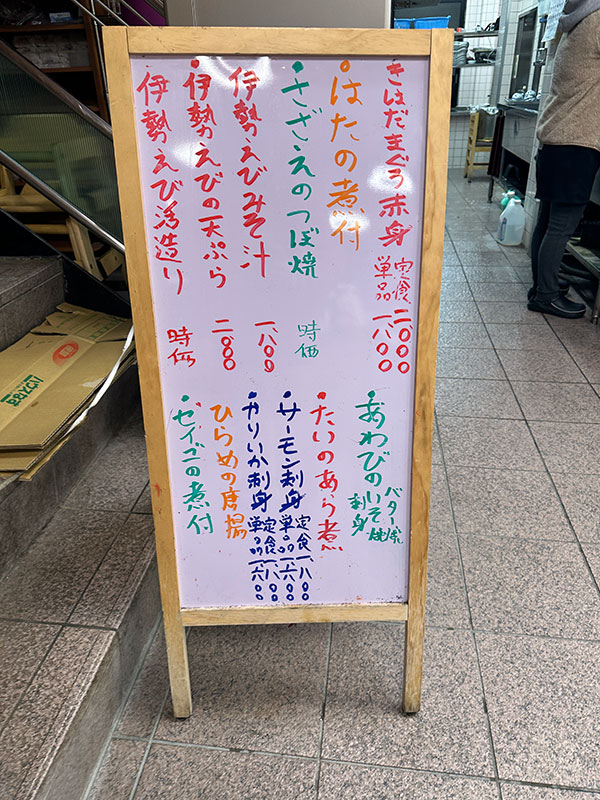 きはだまぐろ赤身 定食 二、〇〇〇
単品 一、八〇〇
・はたの煮付
・さざえのつぼ焼 時価
伊勢えびみそ汁 一、八〇〇
・伊勢えびの天ぷら 二、〇〇〇
伊勢えび活造り 時価
・あわびの バター焼
いそ焼
刺身
・たいのあら煮
・サーモン刺身 定食 一、八〇〇
単品 一、六〇〇
・やりいか刺身 定食 一、八〇〇
単品 一、六〇〇
ひらめの唐揚
・ゼイゴの煮付